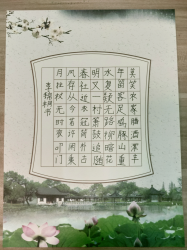 莫笑农家腊酒浑丰
年留客足鸡豚山重
水复疑无路柳暗花
明又一村箫鼓追随
春社近衣冠简朴古
风存从今若许闲乘
月拄杖无时夜叩门
李书